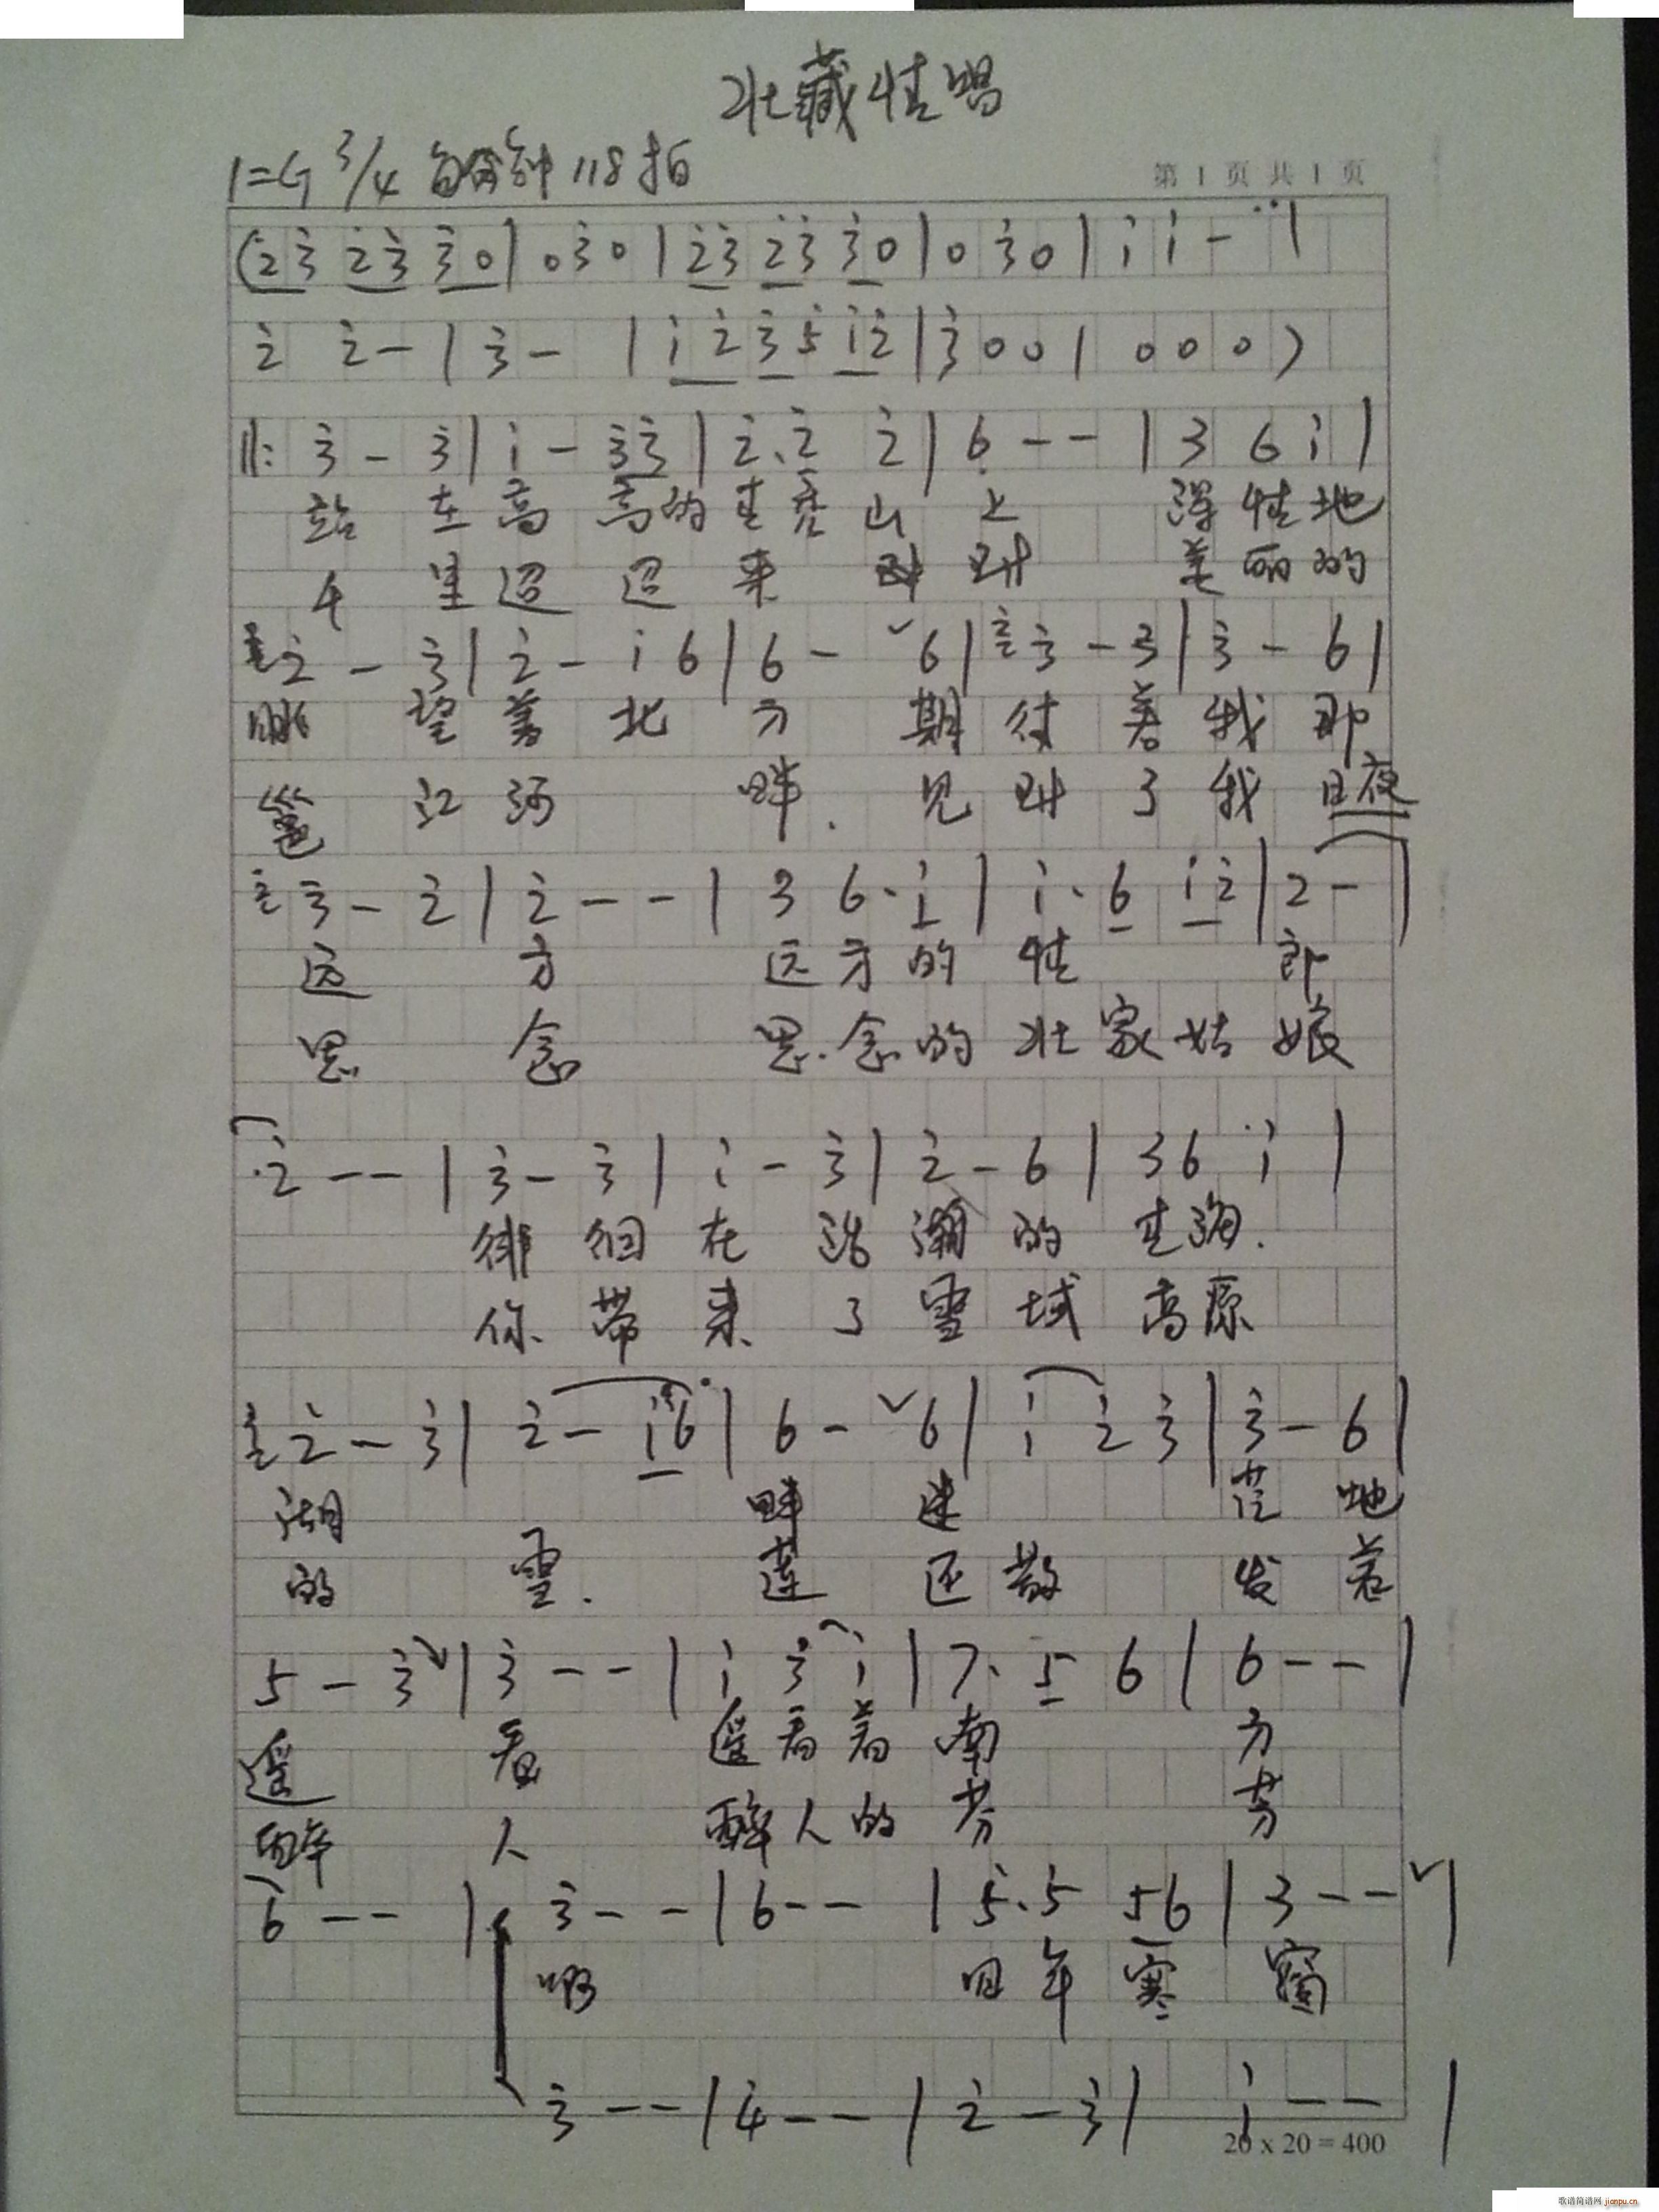 壮藏情唱
1=G 3/4 每分钟118拍
第 1 页 共 1 页
(2̇3̇ 2̇3̇ 3̇0 | 0 3̇ 0 | 2̇3̇ 2̇3̇ 3̇0 | 0 3̇ 0 | 1̇ 1̇ - |
2̇ 2̇ - | 3̇ - | 1̇ 2̇ 3̇ 5̇ 1̇ 2̇ | 3̇ 0 0 | 0 0 0 )
‖: 3̇ - 3̇ | 1̇ - 3̇3̇ | 2̇. 2̇ 2̇ | 6 - - | 3 6 1̇ |
站 在 高 高的 圭 秀 山 上 深 情 地
千 里 迢 迢 来 到 美 丽 的
2̇ - 3̇ | 2̇ - 1̇ 6 | 6 - ˇ 6 | 2̇ 3̇ - 3̇ | 3̇ - 6 |
眺 望 着 北 方 期 待 着 我 那
邕 江 河 畔. 见 到 了 我 日夜
2̇ 3̇ - 2̇ | 2̇ - - | 3 6. 1̇ | 1̇. 6 1̇ 2̇ | 2 - |
远 方 远 方 的 情 郎
思 念 思 念 的 壮 家 姑 娘
2̇ - - | 3̇ - 3̇ | 1̇ - 3̇ | 2̇ - 6 | 3 6 1̇ |
徘 徊 在 浩 瀚 的
你 带 来 了 雪 域 高 原
2̇ 2̇ - 3̇ | 2̇ - 1̇ 6 | 6 - ˇ 6 | 1̇ 2̇ 3̇ | 3̇ - 6 |
湖 畔 迷 茫 地
的 雪. 莲 还 散 发 着
5 - 3̇ | 3̇ - - | 1̇ 3̇ 1̇ | 7. 5 6 | 6 - - |
遥 看 遥 看 着 南 方
醉 人 醉 人 的 芬 芳
6 - - | 3̇ - - | 6 - - | 5. 5 56 | 3 - - ˇ |
啊 四 年 寒 窗
3̇ - - | 4̇ - - | 2̇ - 3̇ | 1̇ - - |
20 x 20 = 400
歌谱简谱网 jianpu.cn